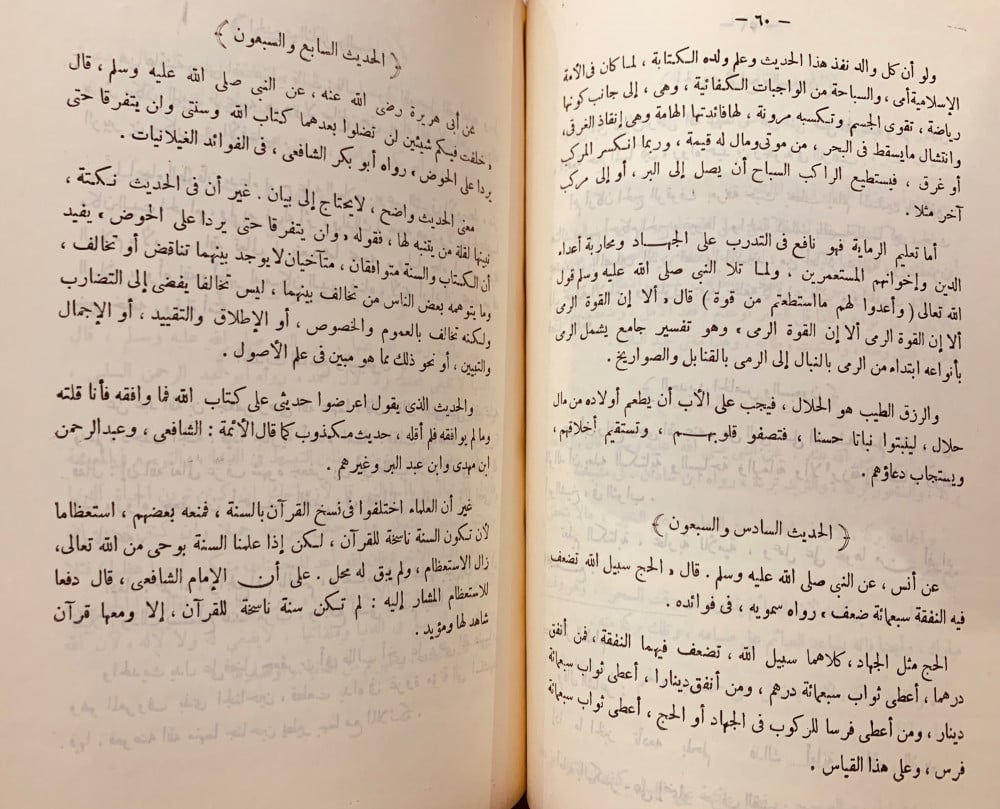 — ٦٠ —
ولو أن كل والد نفذ هذا الحديث وعلم ولده الكتابة ، لما كان فى الأمة
الإسلامية أمى ، والسباحة من الواجبات الكفائية ، وهى ، إلى جانب كونها
رياضة ، تقوى الجسم وتكسبه مرونة ، لها فائدتها الهامة وهى إنقاذ الغرقى،
وانتشال ما يسقط فى البحر ، من موتى ومال له قيمة ، وربما انكسر المركب
أو غرق ، فيستطيع الراكب السباح أن يصل إلى البر ، أو إلى مركب
آخر مثلا .
أما تعليم الرماية فهو نافع فى التدرب على الجهاد ومحاربة أعداء
الدين وإخوانهم المستعمرين ، ولما تلا النبي صلى الله عليه وسلم قول
الله تعالى ( وأعدوا لهم ما استطعتم من قوة ) قال « ألا إن القوة الرمى
ألا إن القوة الرمى ألا إن القوة الرمى » وهو تفسير جامع يشمل الرمى
بأنواعه ابتداء من الرمى بالنبال إلى الرمى بالقنابل والصواريخ .
والرزق الطيب هو الحلال ، فيجب على الأب أن يطعم أولاده من مال
حلال ، لينبتوا نباتا حسنا ، فتصفو قلوبهم ، وتستقيم أخلاقهم ،
ويستجاب دعاؤهم .
﴿ الحديث السادس والسبعون ﴾
عن أنس ، عن النبي صلى الله عليه وسلم . قال « الحج سبيل الله تضعف
فيه النفقة سبعمائة ضعف » رواه سمويه ، فى فوائده .
الحج مثل الجهاد ، كلاهما سبيل الله ، تضعف فيهما النفقة ، فمن أنفق
درهما ، أعطى ثواب سبعمائة درهم ، ومن أنفق دينارا ، أعطى ثواب سبعمائة
دينار ، ومن أعطى فرسا للركوب فى الجهاد أو الحج ، أعطى ثواب سبعمائة
فرس ، وعلى هذا القياس .
﴿ الحديث السابع والسبعون ﴾
عن أبى هريرة رضى الله عنه ، عن النبي صلى الله عليه وسلم ، قال
« خلفت فيكم شيئين لن تضلوا بعدهما كتاب الله وسنتى وان يتفرقا حتى
يردا على الحوض » رواه أبو بكر الشافعى ، فى الفوائد الغيلانيات .
معنى الحديث واضح ، لايحتاج إلى بيان . غير أن فى الحديث نكتة ،
نبينها لقلة من يتنبه لها ، فقوله « وان يتفرقا حتى يردا على الحوض » يفيد
أن الكتاب والسنة متوافقان ، متآخيان لا يوجد بينهما تناقض أو تخالف ،
وما يتوهمه بعض الناس من تخالف بينهما ، ليس تخالفا يفضى إلى التضارب
ولكنه تخالف بالعموم والخصوص ، أو الإطلاق والتقييد ، أو الإجمال
والتبيين ، أو نحو ذلك مما هو مبين فى علم الأصول .
والحديث الذى يقول اعرضوا حديثى على كتاب الله فما وافقه فأنا قلته
وما لم يوافقه فلم أقله ، حديث مكذوب كما قال الأئمة : الشافعى ، وعبد الرحمن
ابن مهدى وابن عبد البر وغيرهم .
غير أن العلماء اختلفوا فى نسخ القرآن بالسنة ، فمنعه بعضهم ، استعظاما
لأن تكون السنة ناسخة للقرآن ، لكن إذا علمنا السنة بوحى من الله تعالى،
زال الاستعظام ، ولم يبق له محل . على أن الإمام الشافعى ، قال دفعا
للاستعظام المشار إليه : لم تكن سنة ناسخة للقرآن ، إلا ومعها قرآن
شاهد لها ومؤيد .